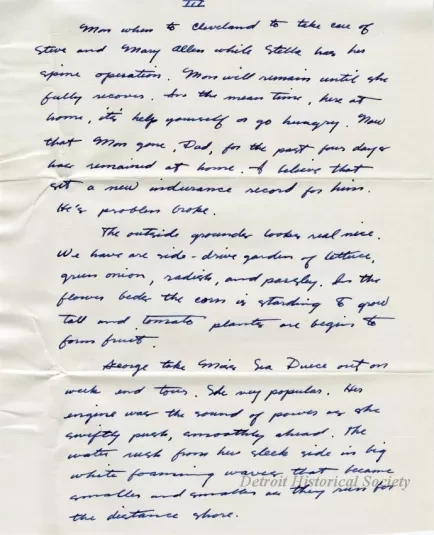 III
Mom when to Cleveland to take care of
Steve and Mary Allen while Stella has her
spine operation. Mom will remain until she
fully recover. In the mean time, here at
home, it's help yourself or go hungry. Now
that Mom gone, Dad, for the past four days
has remained at home. I believe that
set a new indurance record for him.
He's problem broke.
The outside grounds looks real nice.
We have are side-drive garden of lettuce,
green onion, radish, and parsley. In the
flower beds the corn is starding to grow
tall and tomato plants are begins to
form fruit.
George take Miss Sea Duece out on
week end tour. She very popular. Her
engine was the sound of power as she
swiftly push, smoothly ahead. The
water rush from her sleek side in big
white foaming waves that became
smaller and smaller as they run for
the distance shore.
Detroit Historical Society